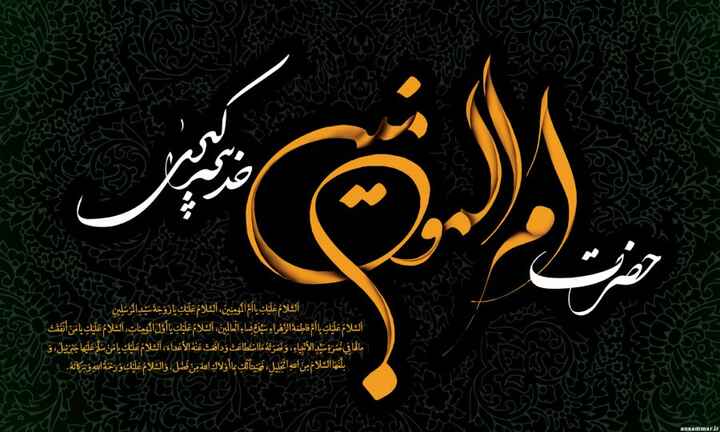 حضرت
ام المومنین
خدیجه کبری
اَلسَّلامُ عَلَیْكِ یا اُمَّ الْمُؤْمِنینَ، اَلسَّلامُ عَلَیْكِ یا زَوْجَةَ سَیِّدِ الْمُرْسَلینَ
اَلسَّلامُ عَلَیْكِ یا اُمَّ فاطِمَةَ الزَّهْراءِ سَیِّدَةِ نِساءِ الْعالَمینَ، اَلسَّلامُ عَلَیْكِ یا اَوَّلَ الْمُؤْمِناتِ، اَلسَّلامُ عَلَیْكِ یا مَنْ اَنْفَقَتْ
مالَها فی نُصْرَةِ سَیِّدِ الْاَنْبِیاءِ، وَ نَصَرَتْهُ مَا اسْتَطاعَتْ وَ دافَعَتْ عَنْهُ الْاَعْداءَ، اَلسَّلامُ عَلَیْكِ یا مَنْ سَلَّمَ عَلَیْها جَبْرَئیلُ، وَ
بَلَّغَهَا السَّلامَ مِنَ اللهِ الْجَلیلِ، فَهَنیئاً لَكِ بِما اَوْلاكِ اللهُ مِنْ فَضْلٍ، وَ السَّلامُ عَلَیْكِ وَ رَحْمَةُ اللهِ وَ بَرَکاتُهُ.
ansammar.ir